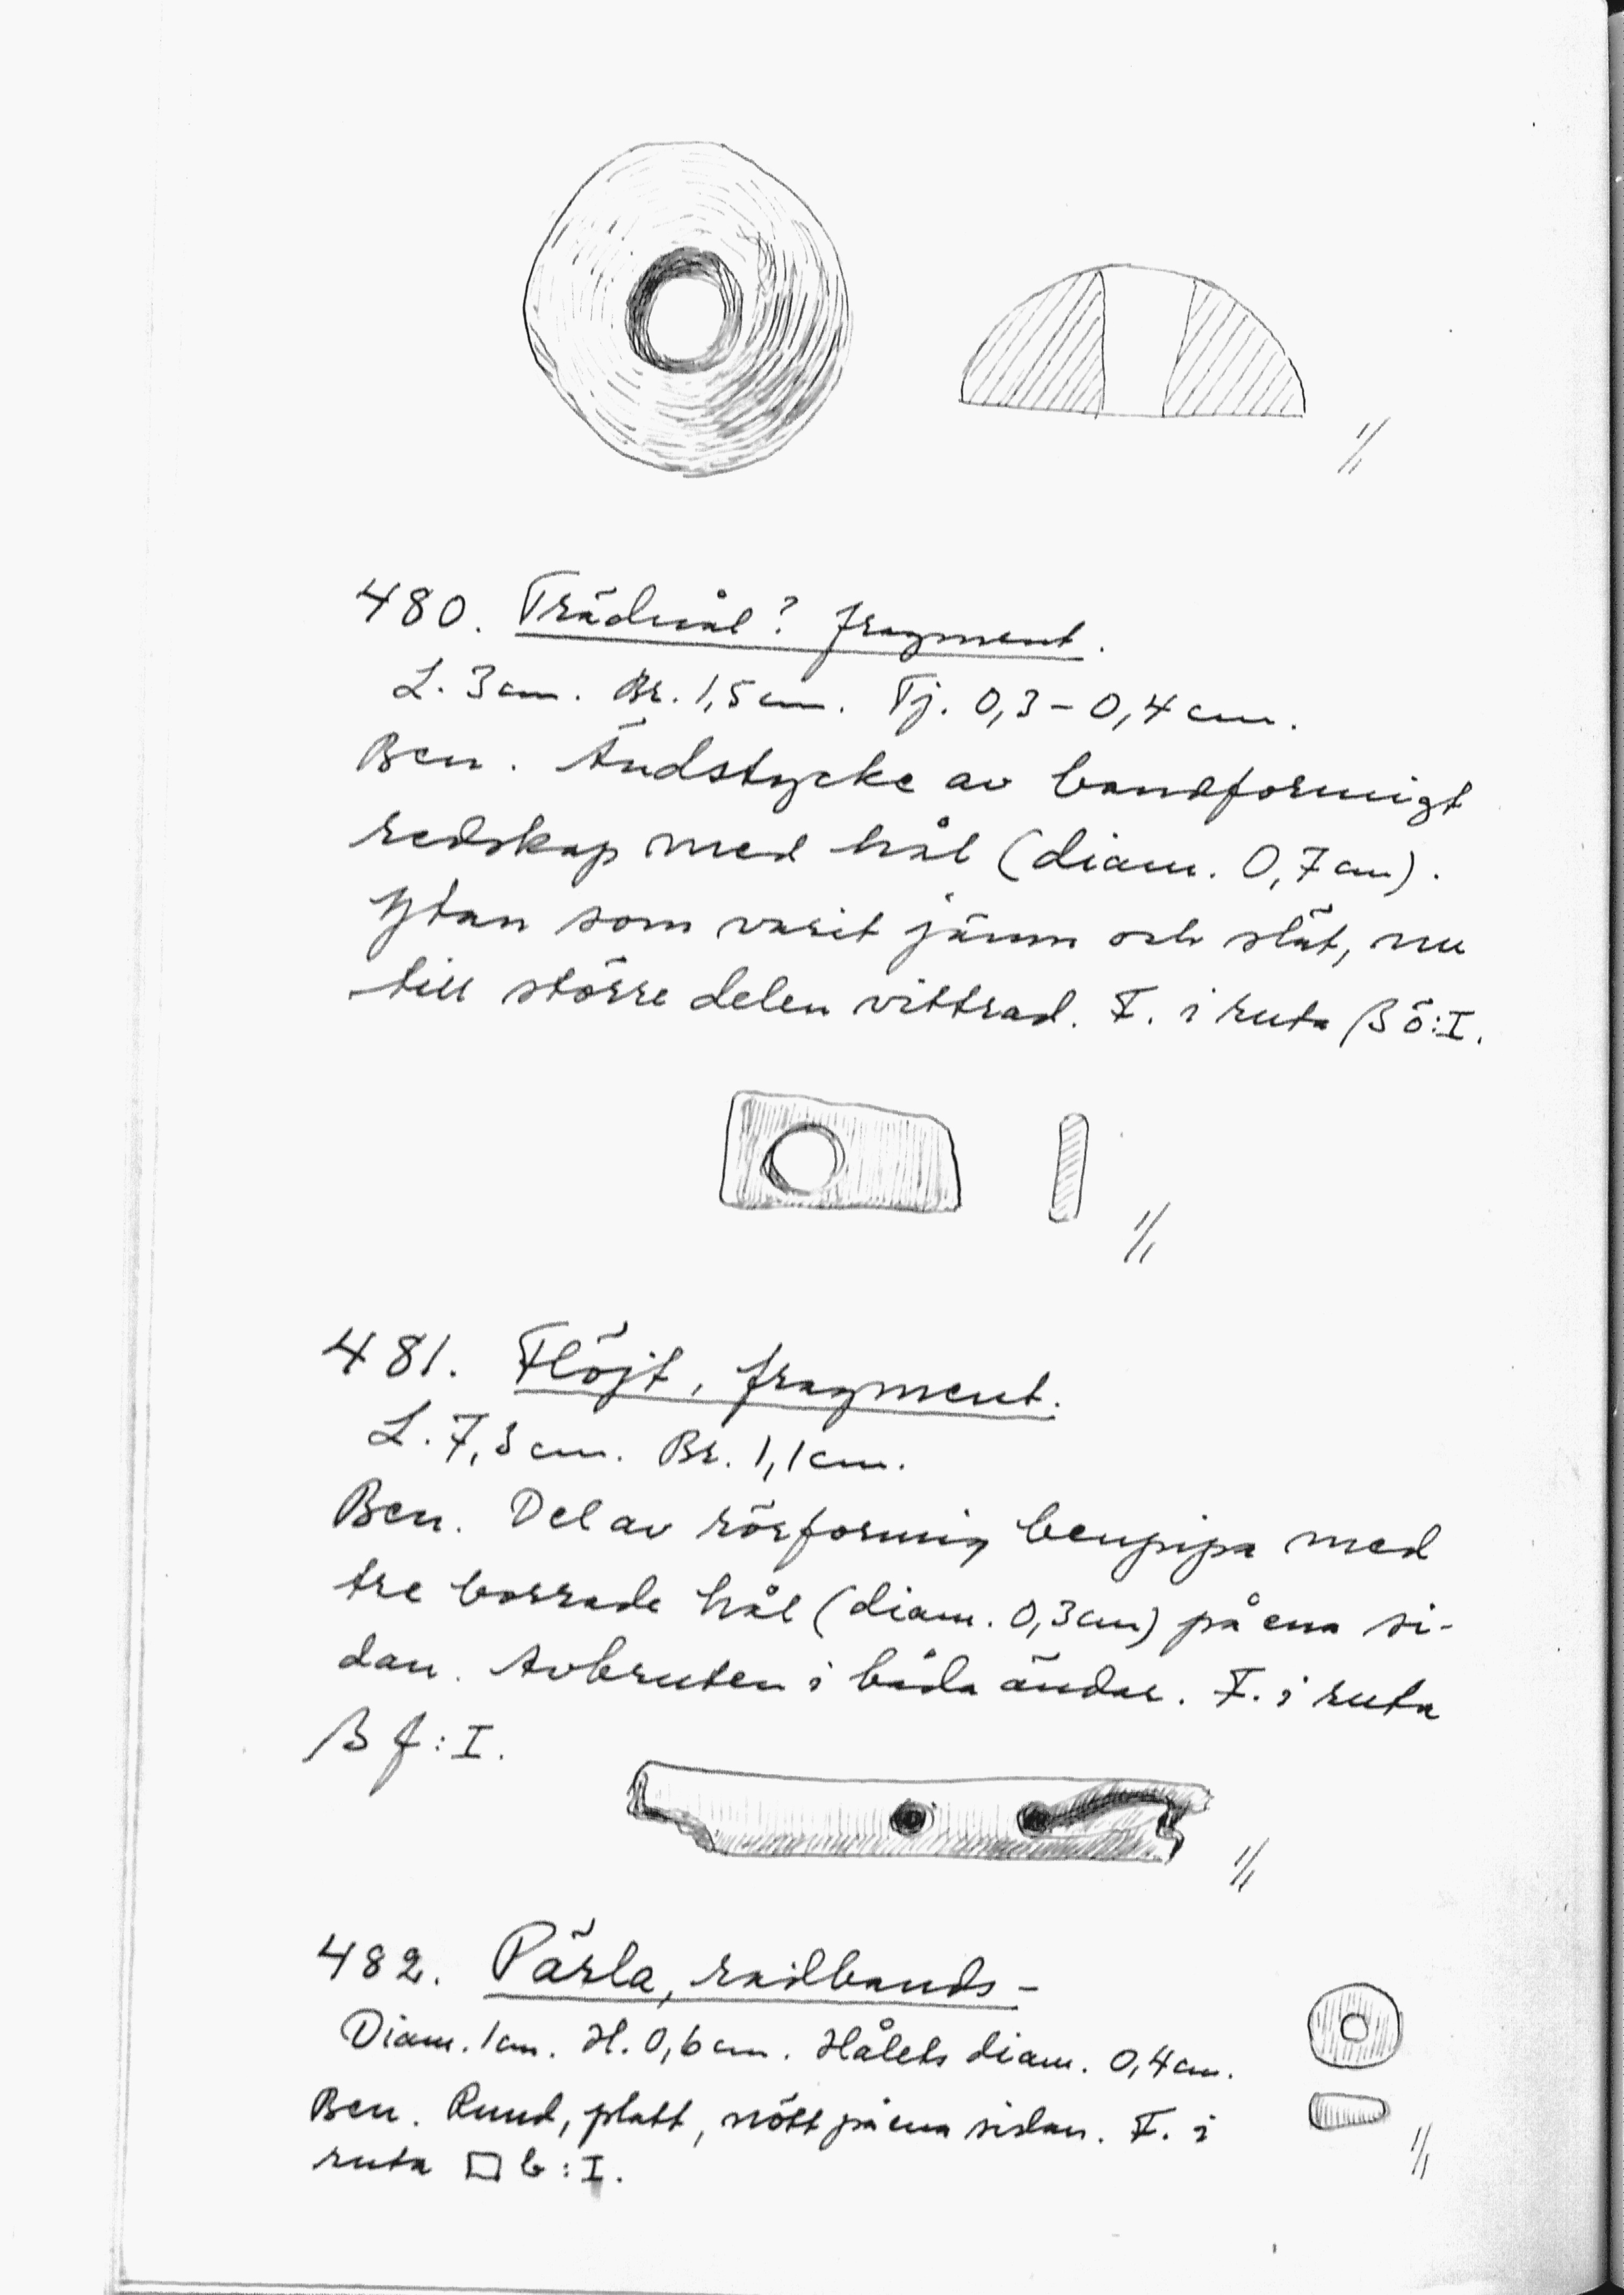 1/1
480. Trädnål? fragment.
L. 3 cm. Br. 1,5 cm. Tj. 0,3 – 0,4 cm.
Ben. Ändstycke av bandformigt
redskap med hål (diam. 0,7 cm).
Ytan som varit jämn och slät, nu
till större delen vittrad. F. i ruta ß ö:I.
1/1
481. Flöjt, fragment.
L. 7,3 cm. Br. 1,1 cm.
Ben. Del av rörformig benpipa med
tre borrade hål (diam. 0,3 cm) på ena si-
dan. Avbruten i båda ändar. F. i ruta
ß f:I.
1/1
482. Pärla, radbands-
Diam. 1 cm. H. 0,6 cm. Hålets diam. 0,4 cm.
Ben. Rund, platt, nött på ena sidan. F. i
ruta □ b:I.
1/1